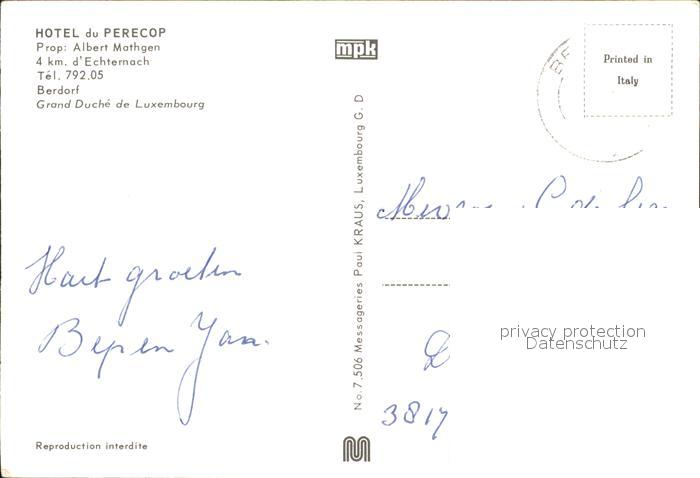 HOTEL du PERECOP
Prop: Albert Mathgen
4 km. d'Echternach
Tél. 792.05
Berdorf
Grand Duché de Luxembourg
mpk
Printed in
Italy
BE
No. 7.506 Messageries Paul KRAUS, Luxembourg G. D
Hart groeten
Bep en Jan.
3817
privacy protection
Datenschutz
Reproduction interdite